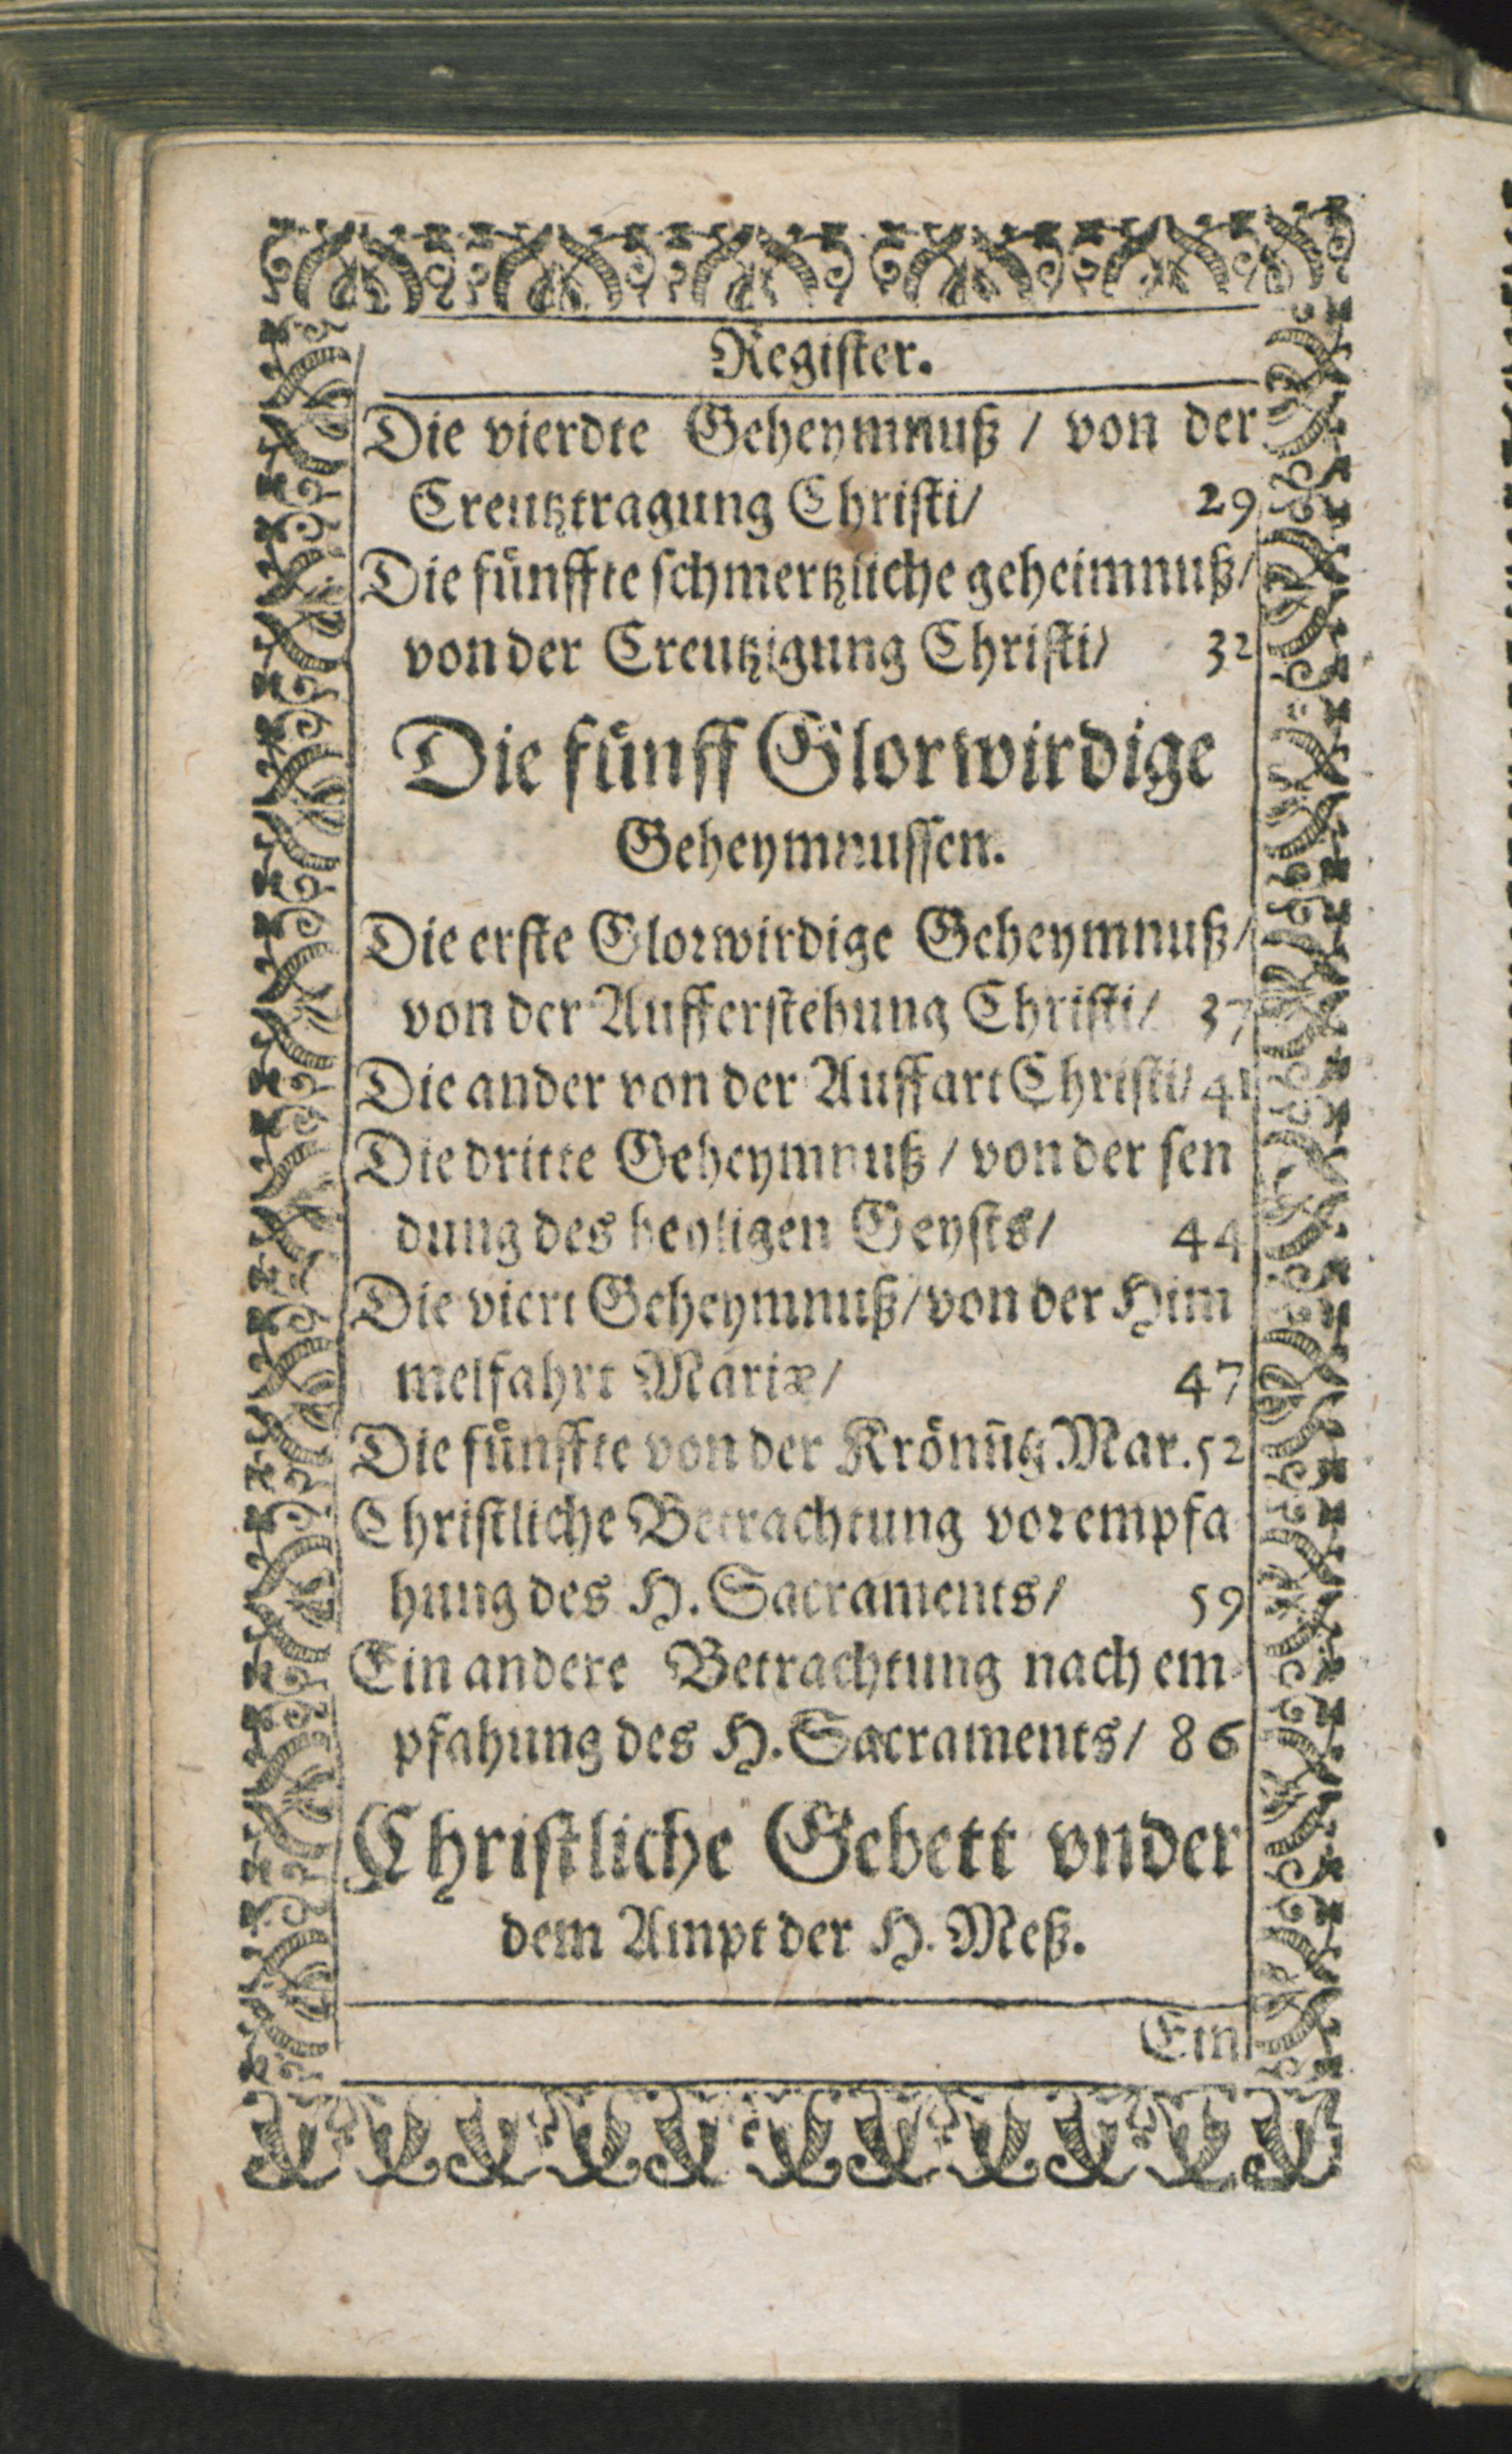 Register.
Die vierdte Geheymnuß / von der
Creutztragung Christi/ 29
Die fünffte schmertzliche geheimnuß/
von der Creutzigung Christi/ 32
Die fünff Glorwirdige
Geheymnussen.
Die erste Glorwirdige Geheymnuß/
von der Aufferstehung Christi/ 37
Die ander von der Auffart Christi/ 41
Die dritte Geheymnuß / von der sen
dung des heyligen Geysts/ 44
Die viert Geheymnuß/ von der Him
melfahrt Mariæ/ 47
Die fünffte von der Krönūg Mar. 52
Christliche Betrachtung vor empfa
hung des H. Sacraments/ 59
Ein andere Betrachtung nach em-
pfahung des H. Sacraments/ 86
Christliche Gebett vnder
dem Ampt der H. Meß.
Ein